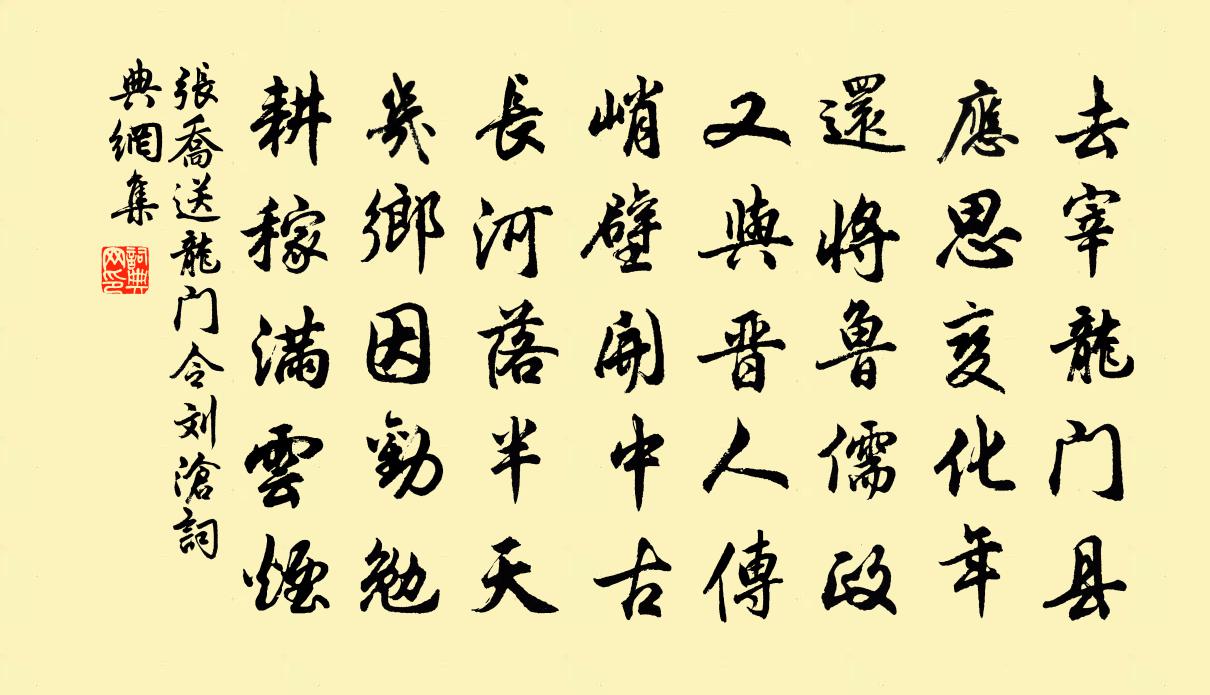 去宰龍门县
應思变化年
還将鲁儒政
又與晋人傳
峭壁開中古
長河落半天
幾鄉因勸勉
耕稼满雲煙
張喬送龍门令刘滄詞
典網集
詞典